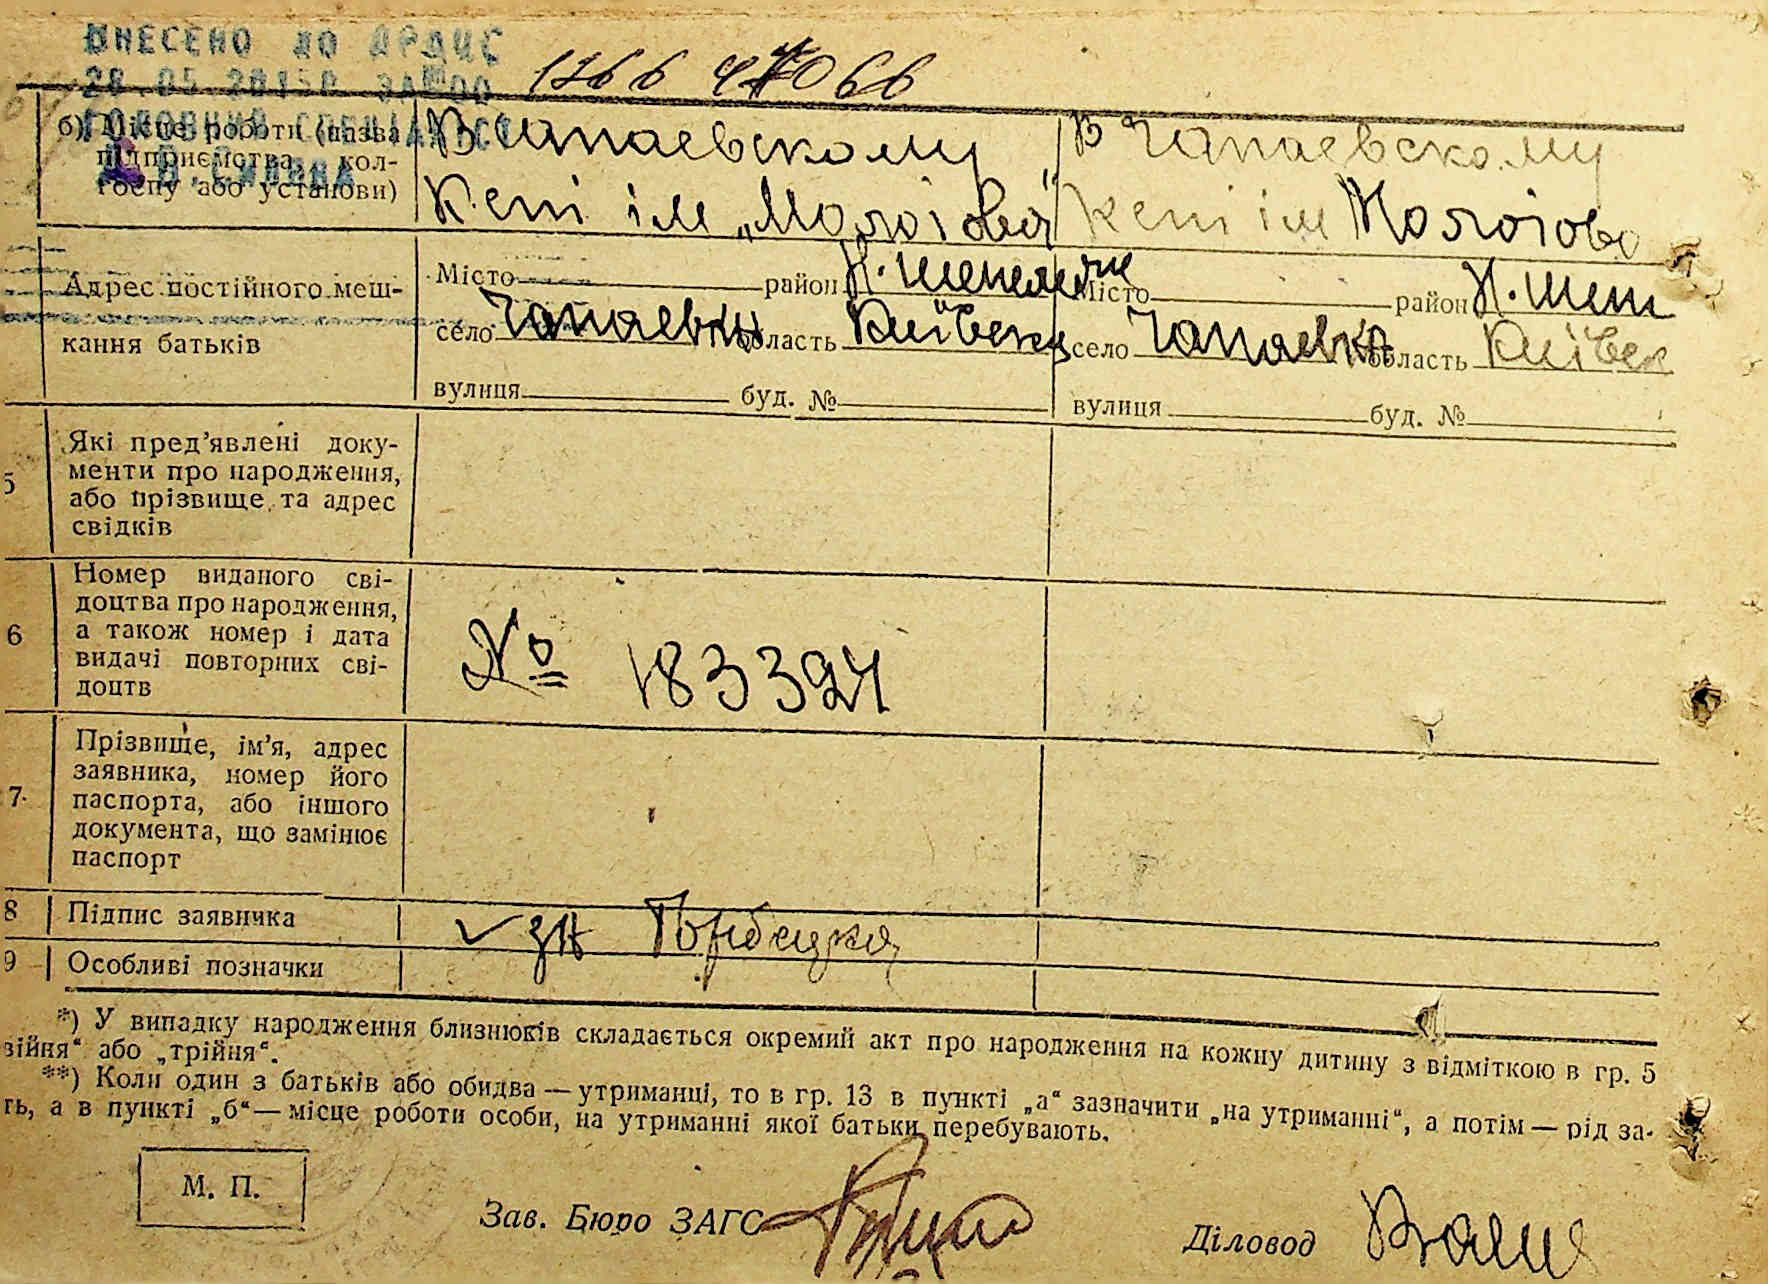 ВНЕСЕНО ДО ДРАЦС
ГОЛОВНИЙ СПЕЦІАЛІСТ
б) Місце роботи (назва підприємства, колгоспу або установи)
В Чапаевскому
Кепі ім „Молотова“
В Чапаевскому
Кепі ім Молотово
Адрес постійного меш-
кання батьків
Місто район Н. Шепелич
село Чапаевки область Київск
вулиця буд. №
Місто район Н. Шеп
село Чапаевка область Київск
вулиця буд. №
5
Які пред’явлені доку-
менти про народження,
або прізвище та адрес
свідків
6
Номер виданого сві-
доцтва про народження,
а також номер і дата
видачі повторних сві-
доцтв
№ 183324
7.
Прізвище, ім’я, адрес
заявника, номер його
паспорта, або іншого
документа, що замінює
паспорт
8 Підпис заявника
9 Особливі позначки
*) У випадку народження близнюків складається окремий акт про народження на кожну дитину з відміткою в гр. 5
війня“ або „трійня“.
**) Коли один з батьків або обидва — утриманці, то в гр. 13 в пункті „а“ зазначити „на утриманні“, а потім — рід за-
ть, а в пункті „б“ — місце роботи особи, на утриманні якої батьки перебувають.
М. П.
Зав. Бюро ЗАГС
Діловод